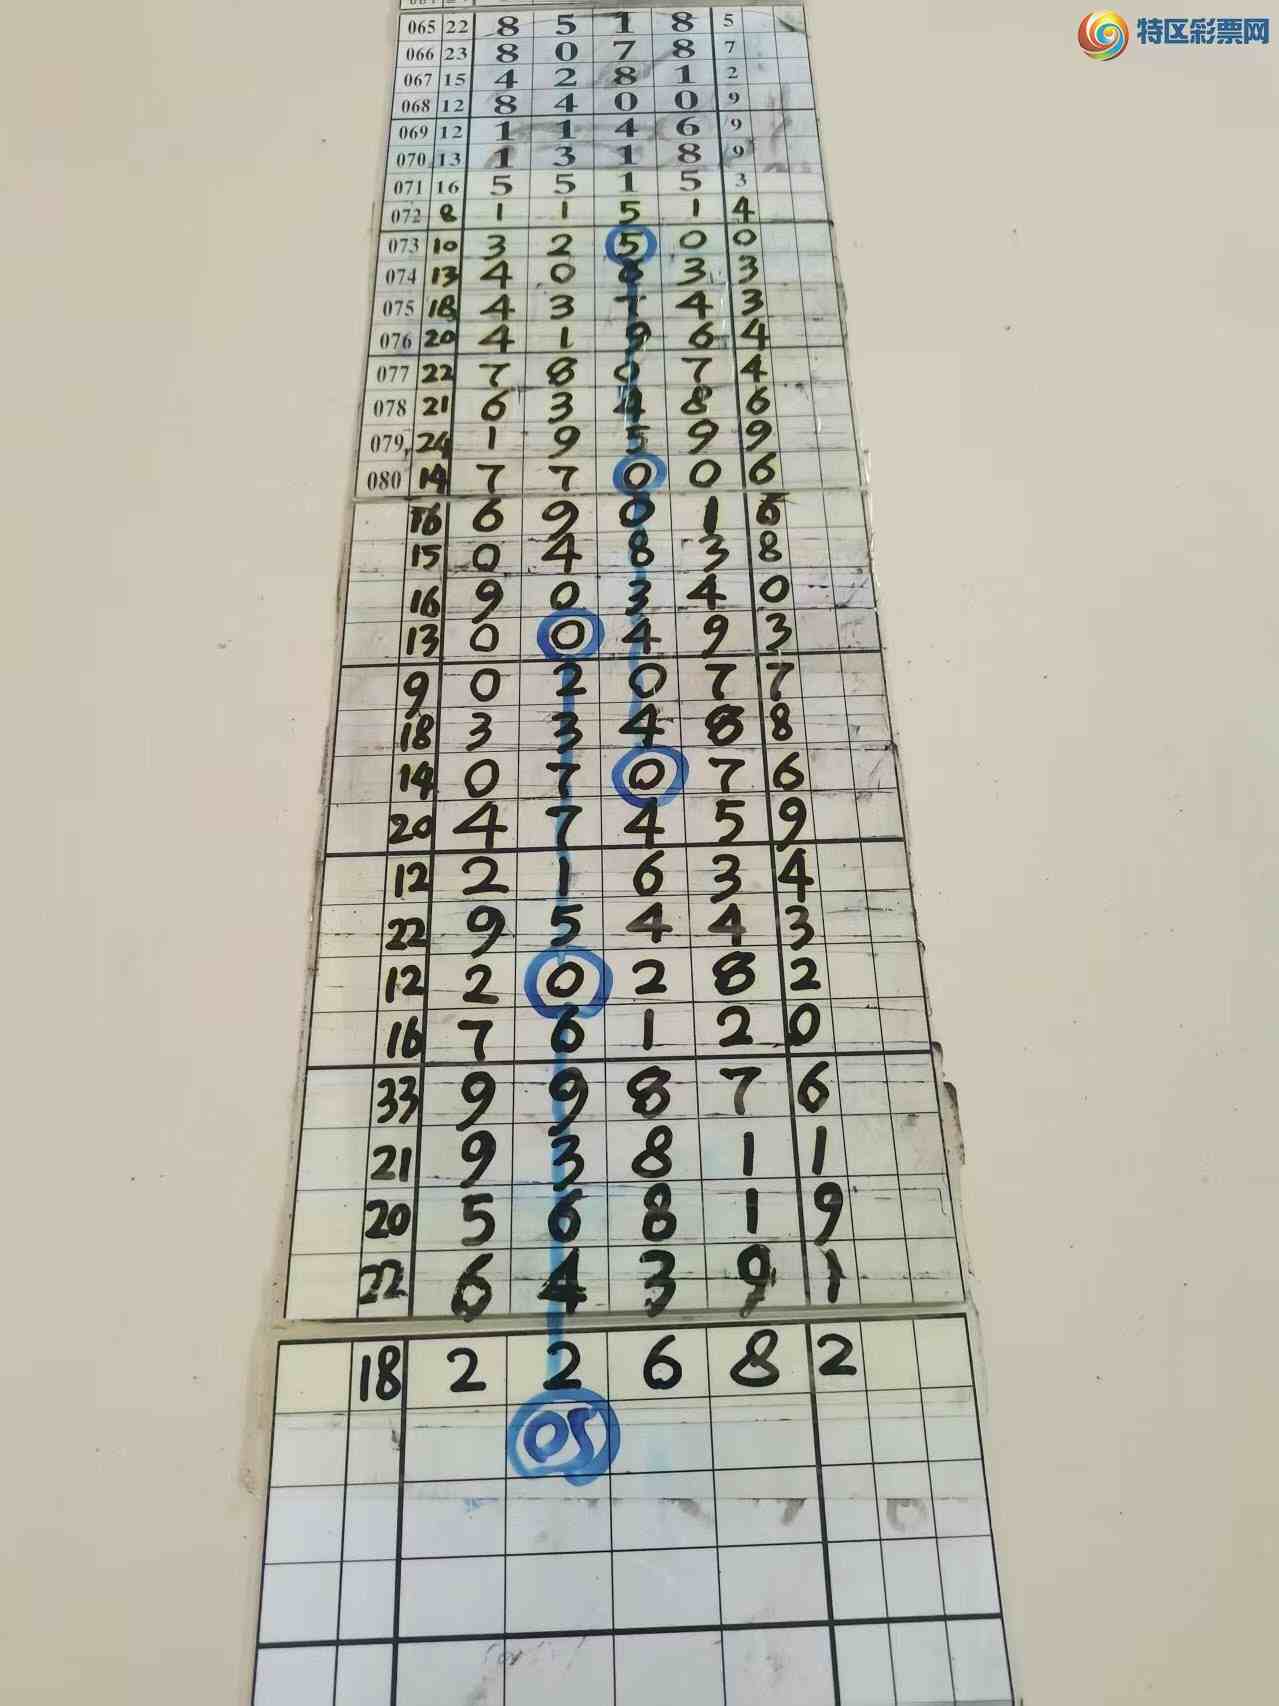 特区彩票网
065 22 8 5 1 8 5
066 23 8 0 7 8 7
067 15 4 2 8 1 2
068 12 8 4 0 0 9
069 12 1 1 4 6 9
070 13 1 3 1 8 9
071 16 5 5 1 5 3
072 8 1 1 5 1 4
073 10 3 2 5 0 0
074 13 4 0 6 3 3
075 18 4 3 7 4 3
076 20 4 1 9 6 4
077 22 7 8 0 7 4
078 21 6 3 4 8 6
079 24 1 9 5 9 9
080 14 7 7 0 0 6
16 6 9 0 1 6
15 0 4 8 3 8
16 9 0 3 4 0
13 0 0 4 9 3
9 0 2 0 7 7
18 3 3 4 8 8
14 0 7 0 7 6
20 4 7 4 5 9
12 2 1 6 3 4
22 9 5 4 4 3
12 2 0 2 8 2
16 7 6 1 2 0
33 9 9 8 7 6
21 9 3 8 1 1
20 5 6 8 1 9
22 6 4 3 9 1
18 2 2 6 8 2
05